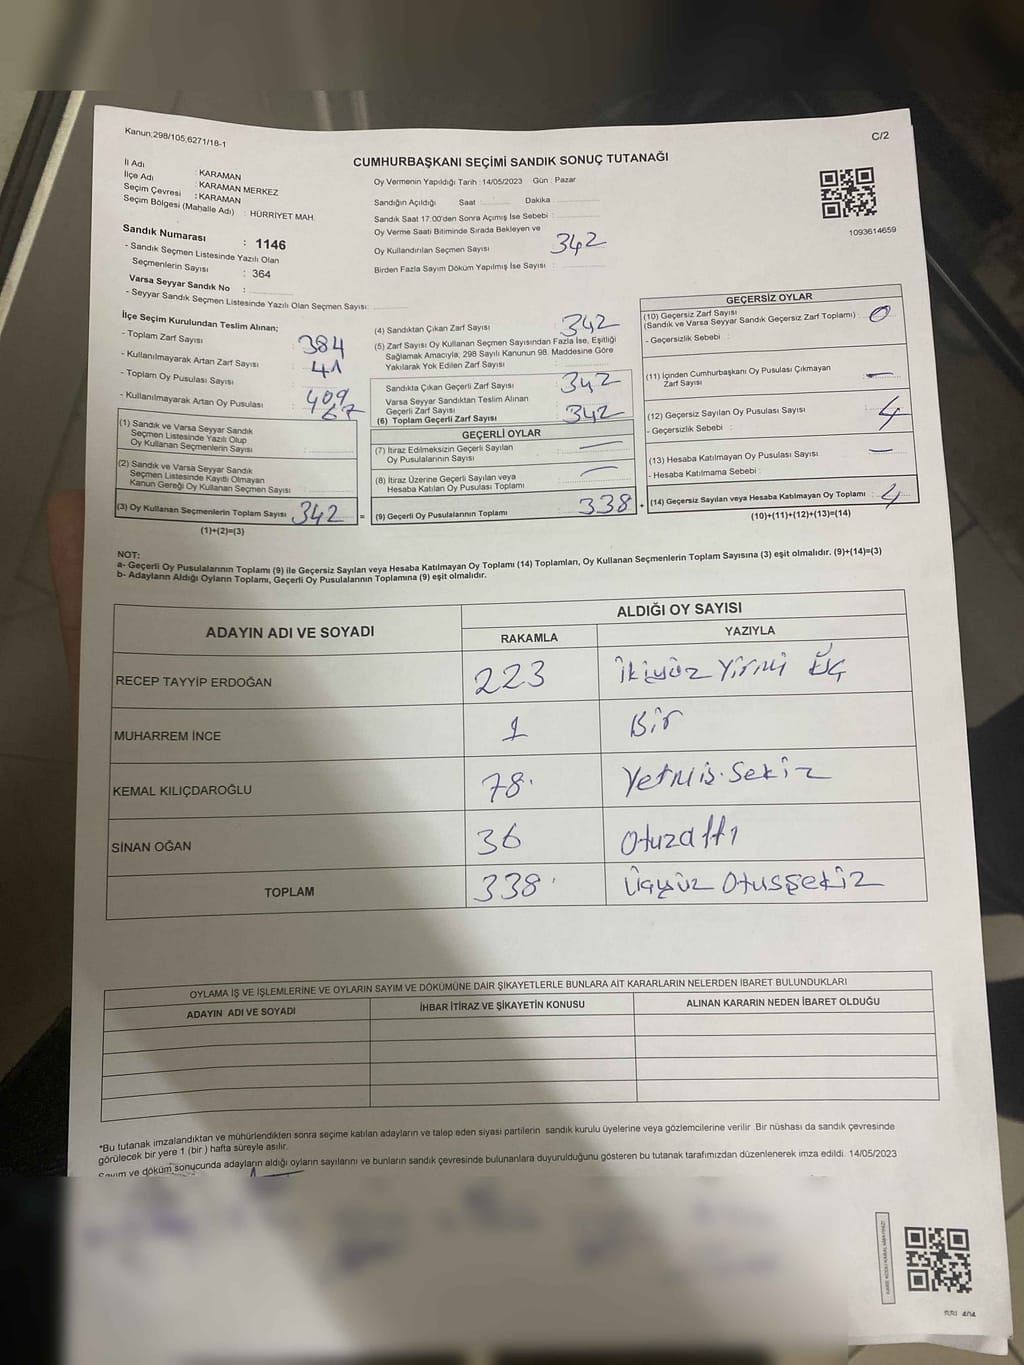 Kanun:298/105;6271/18-1
C/2
CUMHURBAŞKANI SEÇİMİ SANDIK SONUÇ TUTANAĞI
İl Adı : KARAMAN
İlçe Adı : KARAMAN MERKEZ
Seçim Çevresi : KARAMAN
Seçim Bölgesi (Mahalle Adı) : HÜRRİYET MAH.
Sandık Numarası : 1146
- Sandık Seçmen Listesinde Yazılı Olan
Seçmenlerin Sayısı : 364
Varsa Seyyar Sandık No :
- Seyyar Sandık Seçmen Listesinde Yazılı Olan Seçmen Sayısı:
Oy Vermenin Yapıldığı Tarih : 14/05/2023 Gün : Pazar
Sandığın Açıldığı Saat : Dakika :
Sandık Saat 17:00'den Sonra Açımış İse Sebebi :
Oy Verme Saati Bitiminde Sırada Bekleyen ve
Oy Kullandırılan Seçmen Sayısı 342
Birden Fazla Sayım Döküm Yapılmış İse Sayısı :
1093614659
İlçe Seçim Kurulundan Teslim Alınan;
- Toplam Zarf Sayısı : 384
- Kullanılmayarak Artan Zarf Sayısı : 41
- Toplam Oy Pusulası Sayısı : 409
- Kullanılmayarak Artan Oy Pusulası : 67
(1) Sandık ve Varsa Seyyar Sandık
Seçmen Listesinde Yazılı Olup
Oy Kullanan Seçmenlerin Sayısı :
(2) Sandık ve Varsa Seyyar Sandık
Seçmen Listesinde Kayıtlı Olmayan
Kanun Gereği Oy Kullanan Seçmen Sayısı :
(3) Oy Kullanan Seçmenlerin Toplam Sayısı 342
(1)+(2)=(3)
=
(4) Sandıktan Çıkan Zarf Sayısı : 342
(5) Zarf Sayısı Oy Kullanan Seçmen Sayısından Fazla İse, Eşitliği
Sağlamak Amacıyla; 298 Sayılı Kanunun 98. Maddesine Göre
Yakılarak Yok Edilen Zarf Sayısı :
Sandıkta Çıkan Geçerli Zarf Sayısı : 342
Varsa Seyyar Sandıktan Teslim Alınan
Geçerli Zarf Sayısı :
(6) Toplam Geçerli Zarf Sayısı : 342
GEÇERLİ OYLAR
(7) İtiraz Edilmeksizin Geçerli Sayılan
Oy Pusulalarının Sayısı : —
(8) İtiraz Üzerine Geçerli Sayılan veya
Hesaba Katılan Oy Pusulası Toplamı : —
(9) Geçerli Oy Pusulalarının Toplamı : 338
+
GEÇERSİZ OYLAR
(10) Geçersiz Zarf Sayısı
(Sandık ve Varsa Seyyar Sandık Geçersiz Zarf Toplamı) : 0
- Geçersizlik Sebebi :
(11) İçinden Cumhurbaşkanı Oy Pusulası Çıkmayan
Zarf Sayısı : —
(12) Geçersiz Sayılan Oy Pusulası Sayısı : 4
- Geçersizlik Sebebi :
(13) Hesaba Katılmayan Oy Pusulası Sayısı : —
- Hesaba Katılmama Sebebi :
(14) Geçersiz Sayılan veya Hesaba Katılmayan Oy Toplamı : 4
(10)+(11)+(12)+(13)=(14)
NOT:
a- Geçerli Oy Pusulalarının Toplamı (9) ile Geçersiz Sayılan veya Hesaba Katılmayan Oy Toplamı (14) Toplamları, Oy Kullanan Seçmenlerin Toplam Sayısına (3) eşit olmalıdır. (9)+(14)=(3)
b- Adayların Aldığı Oyların Toplamı, Geçerli Oy Pusulalarının Toplamına (9) eşit olmalıdır.
ADAYIN ADI VE SOYADI
ALDIĞI OY SAYISI
RAKAMLA YAZIYLA
RECEP TAYYİP ERDOĞAN 223 İkiyüz Yirmi Üç
MUHARREM İNCE 1 Bir
KEMAL KILIÇDAROĞLU 78 Yetmiş Sekiz
SİNAN OĞAN 36 Otuzaltı
TOPLAM 338 Üçyüz Otuzsekiz
OYLAMA İŞ VE İŞLEMLERİNE VE OYLARIN SAYIM VE DÖKÜMÜNE DAİR ŞİKAYETLERLE BUNLARA AİT KARARLARIN NELERDEN İBARET BULUNDUKLARI
ADAYIN ADI VE SOYADI İHBAR İTİRAZ VE ŞİKAYETİN KONUSU ALINAN KARARIN NEDEN İBARET OLDUĞU
*Bu tutanak imzalandıktan ve mühürlendikten sonra seçime katılan adayların ve talep eden siyasi partilerin sandık kurulu üyelerine veya gözlemcilerine verilir. Bir nüshası da sandık çevresinde
görülecek bir yere 1 (bir ) hafta süreyle asılır.
Sayım ve döküm sonucunda adayların aldığı oyların sayılarını ve bunların sandık çevresinde bulunanlara duyurulduğunu gösteren bu tutanak tarafımızdan düzenlenerek imza edildi. 14/05/2023